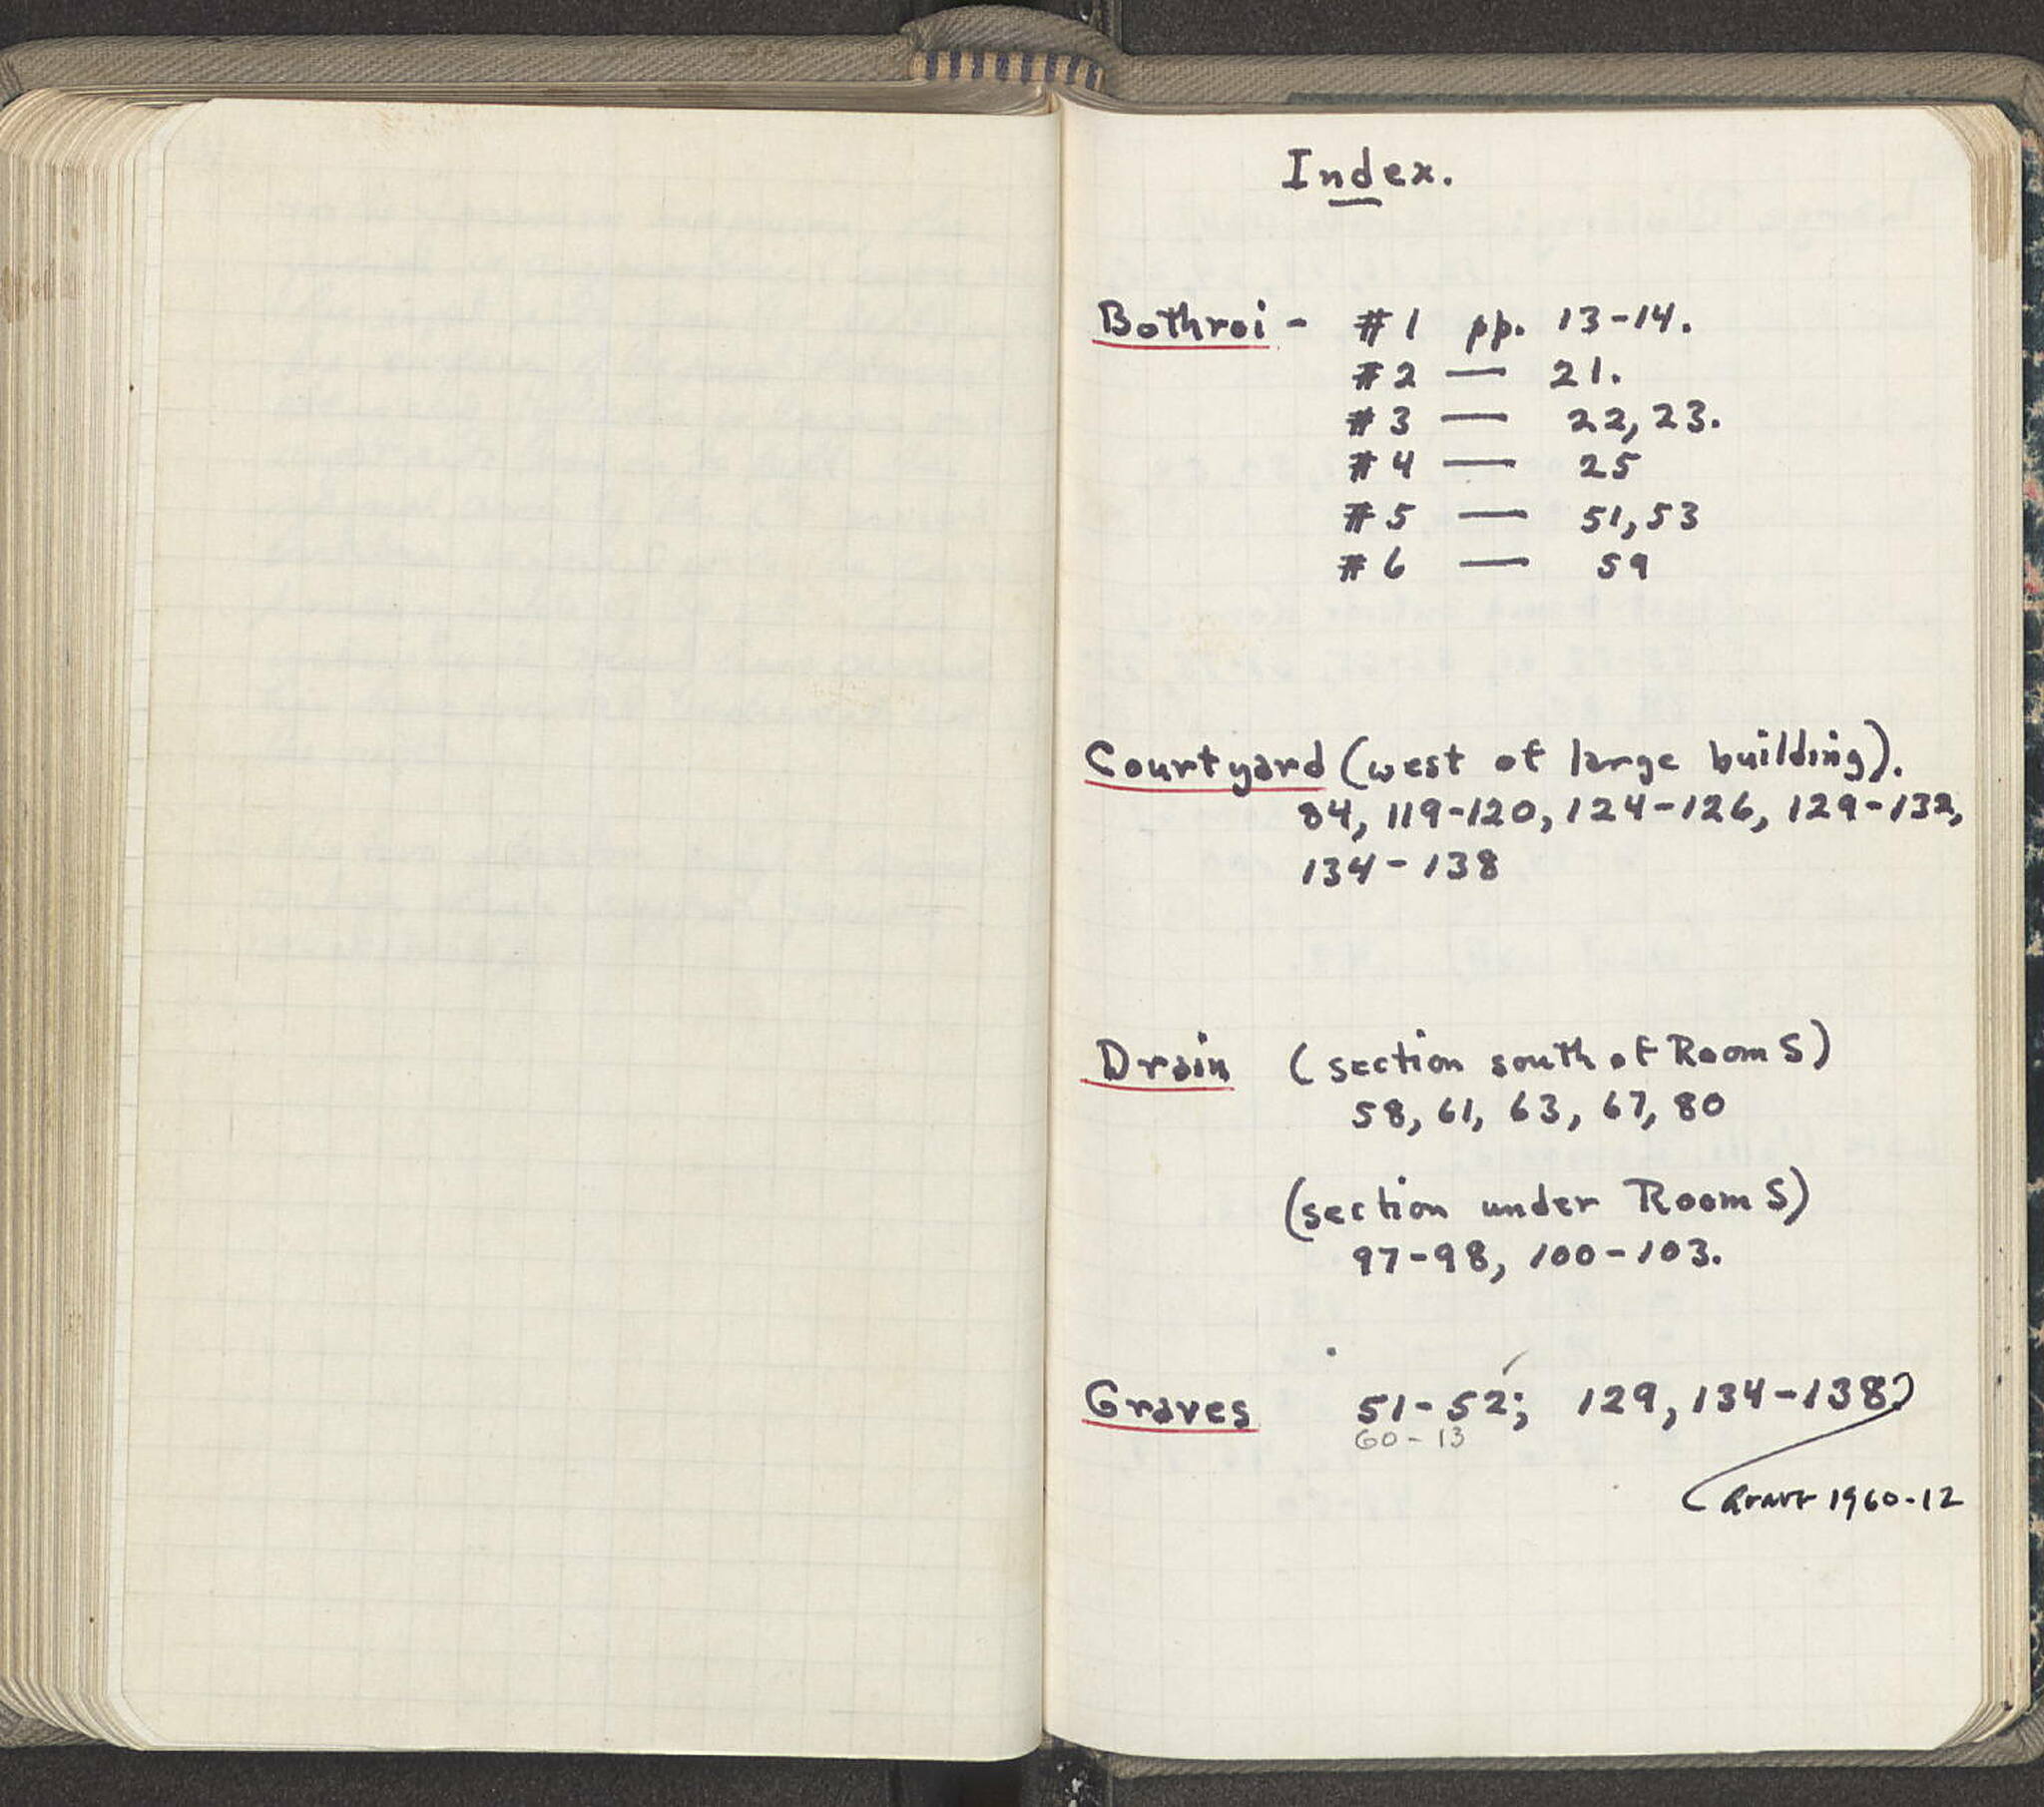 Index.
Bothroi - #1 pp. 13-14.
#2 — 21.
#3 — 22, 23.
#4 — 25
#5 — 51, 53
#6 — 59
Courtyard (west of large building).
84, 119-120, 124-126, 129-132,
134-138
Drain (section south of Room S)
58, 61, 63, 67, 80
(section under Room S)
97-98, 100-103.
Graves 51-52; 129, 134-138
60-13
Grave 1960-12